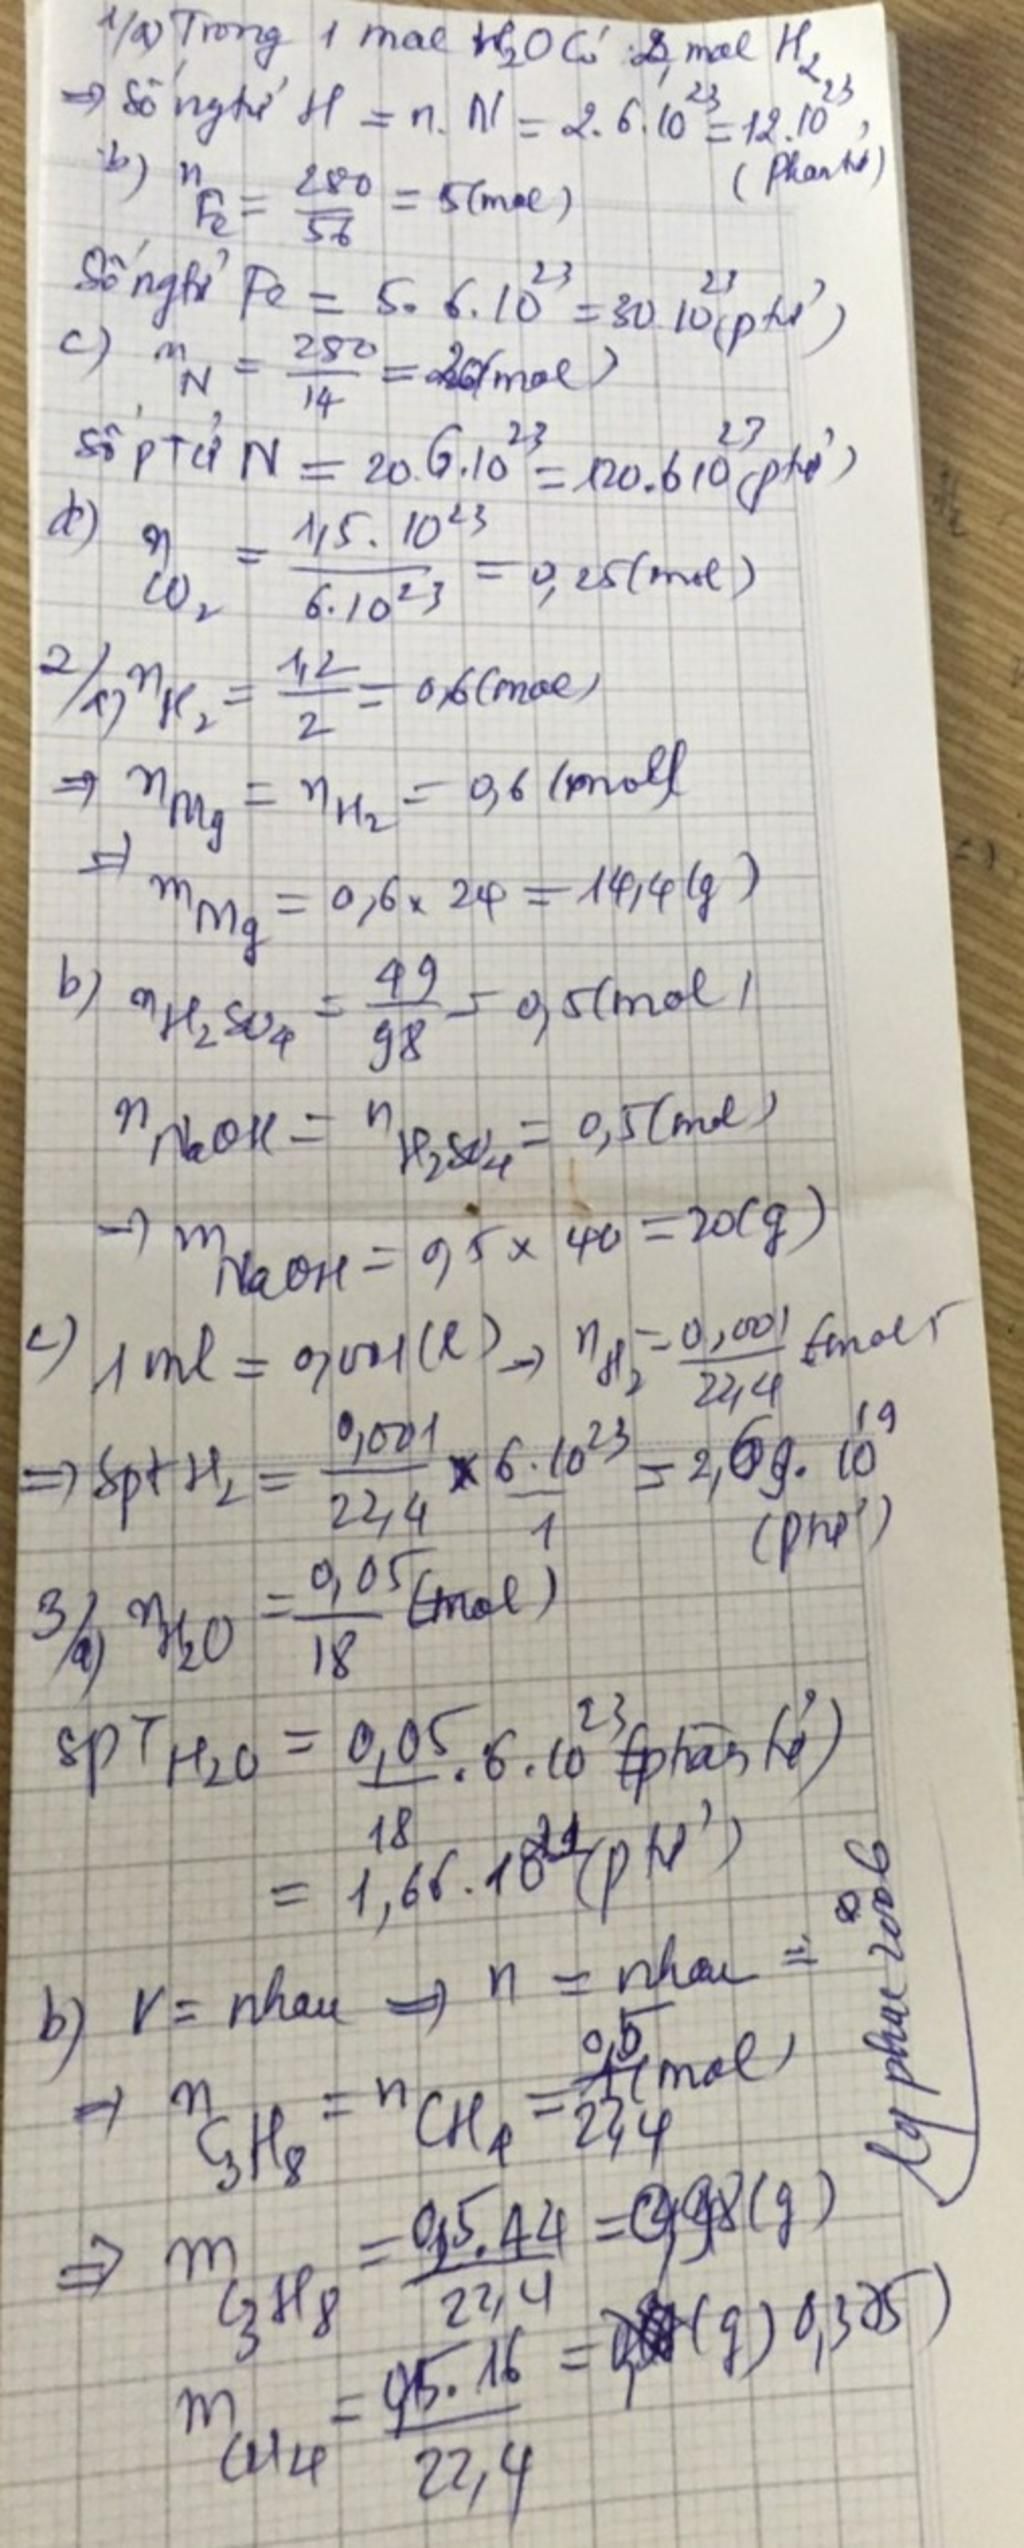 1/a) Trong 1 mol H₂O Có 2 mol H₂
⇒ Số ngtử H = n. N = 2. 6.10²³ = 12.10²³,
(Phantử)
b) n Fe = 280/56 = 5(mol)
Số ngtử Fe = 5. 6.10²³ = 30.10²³ (ptử)
c) n N = 280/14 = 20(mol)
Số pTử N = 20.6.10²³ = 120.610²³ (ptử)
d) n CO₂ = 1,5.10²³/6.10²³ = 0,25(mol)
2/a) n H₂ = 1,2/2 = 0,6(mol)
⇒ n Mg = n H₂ = 0,6 (mol)
⇒ m Mg = 0,6 x 24 = 14,4(g)
b) n H₂SO₄ = 49/98 = 0,5(mol)
n NaOH = n H₂SO₄ = 0,5(mol)
→ m NaOH = 0,5 x 40 = 20(g)
c) 1 ml = 0,001(l) → n H₂ = 0,001/22,4 (mol)
⇒ Spt H₂ = 0,001/22,4 x 6.10²³/1 = 2,69.10¹⁹
(ptử)
3/a) n H₂O = 0,05/18 (mol)
SpT H₂O = 0,05/18 . 6.10²³ (phân tử)
= 1,66.10²¹ (ptử)
b) V = nhau ⇒ n = nhau =
⇒ n C₃H₈ = n CH₄ = 0,5/22,4 (mol)
⇒ m C₃H₈ = 0,5.44/22,4 = 0,98(g)
m CH₄ = 0,5.16/22,4 = (g) 0,375)